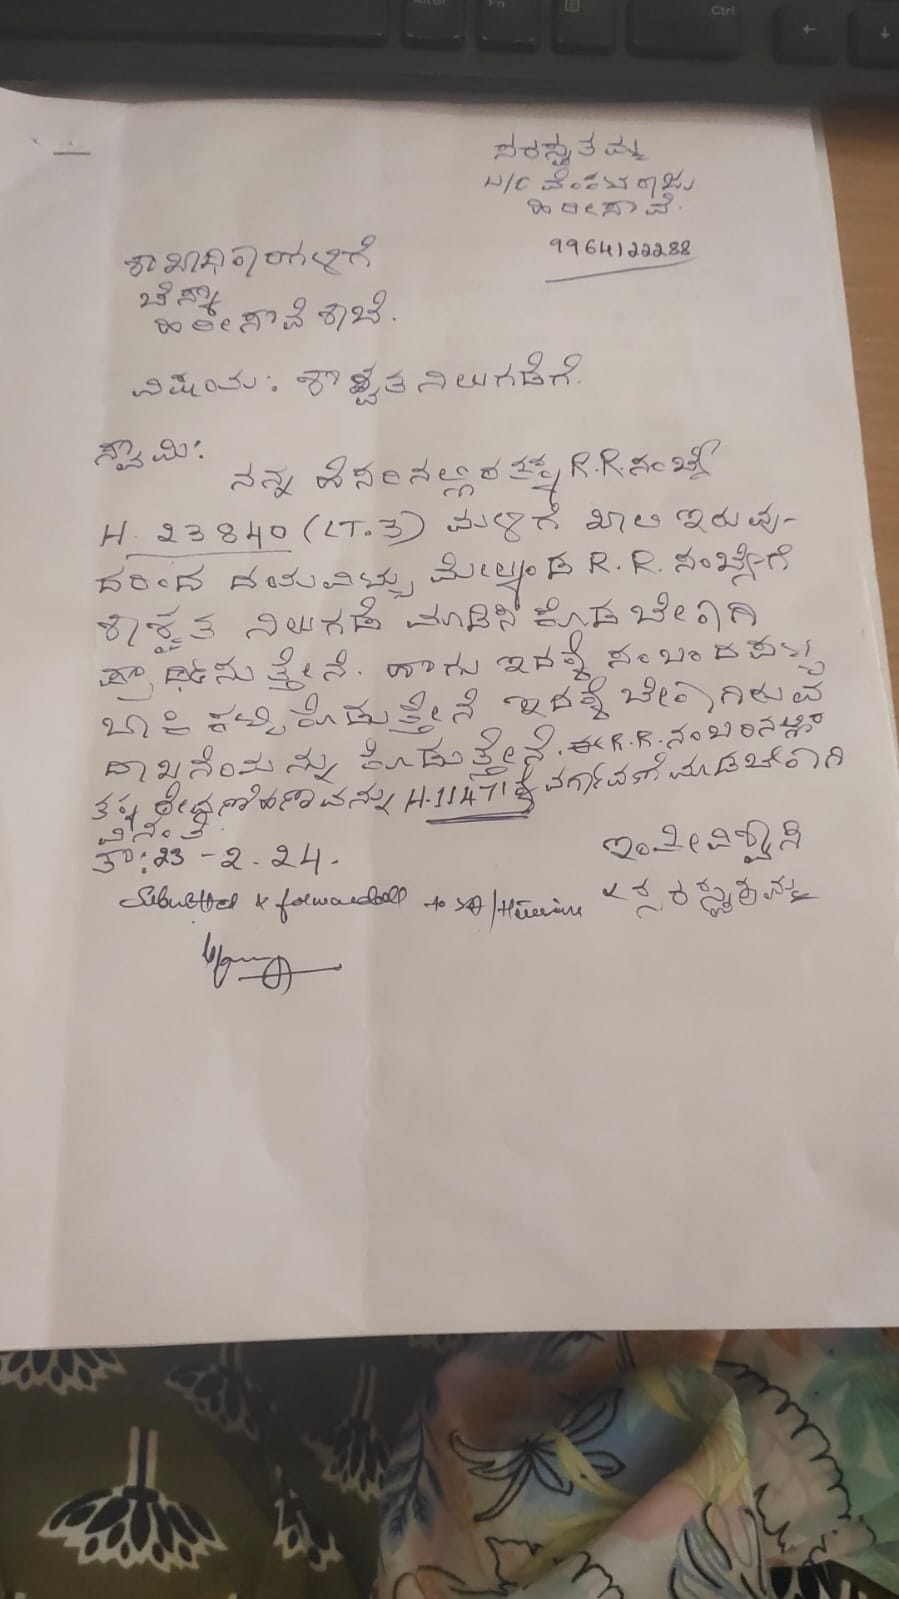 ಸರಸ್ವತಮ್ಮ
W/C ವೆಂಕಟರಾಜು
ಹಿರೀಸಾವೆ.
9964122288
ಶಾಖಾಧಿಕಾರಿಗಳಿಗೆ
ಚೆಸ್ಕಾಂ
ಹಿರೀಸಾವೆ ಶಾಖೆ.
ವಿಷಯ: ಶಾಶ್ವತ ನಿಲುಗಡೆಗೆ.
ಸ್ವಾಮಿ:
ನನ್ನ ಹೆಸರಿನಲ್ಲಿರತಕ್ಕ R.R. ಸಂಖ್ಯೆ
H. 23840 (LT.3) ಮಳಿಗೆ ಖಾಲಿ ಇರುವು-
ದರಿಂದ ದಯವಿಟ್ಟು ಮೇಲ್ಕಂಡ R.R. ಸಂಖ್ಯೆಗೆ
ಶಾಶ್ವತ ನಿಲುಗಡೆ ಮಾಡಿಸಿ ಕೊಡಬೇಕಾಗಿ
ಪ್ರಾರ್ಥಿಸುತ್ತೇನೆ. ಹಾಗು ಇದಕ್ಕೆ ಸಂಬಂದಪಟ್ಟ
ಬಾಕಿ ಕಟ್ಟಿಕೊಡುತ್ತೇನೆ ಇದಕ್ಕೆ ಬೇಕಾಗಿರುವ
ದಾಖಲೆಯನ್ನು ಕೊಡುತ್ತೇನೆ. ಈ R.R. ನಂಬರಿನಲ್ಲಿ
ಠೇವಣಿ ಹಣವನ್ನು H.11471 ಕ್ಕೆ ವರ್ಗಾವಣೆ ಮಾಡಬೇಕಾಗಿ
ವಿನಂತಿ
ತಾ: 23-2.24.
ಇಂತೀ ವಿಶ್ವಾಸಿ
ಸರಸ್ವತಮ್ಮ
Submitted & forwarded to